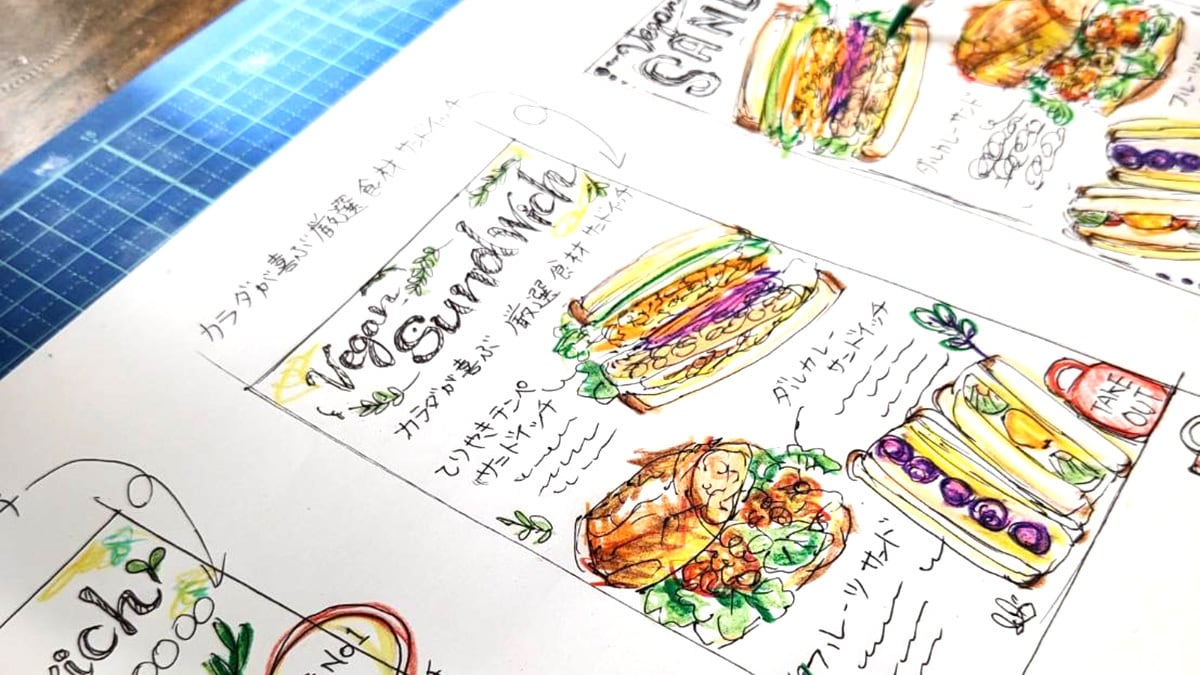 Vegan
SAND
ダルカレーサンド
フルーツサ
カラダが喜ぶ 厳選食材 サンドイッチ
Vegan
SundWich
カラダが喜ぶ 厳選食材 サンドイッチ
てりやきテンペ
サンドイッチ
ダルカレー
サンドイッチ
TAKE
OUT
フルーツサンド
ich
No1